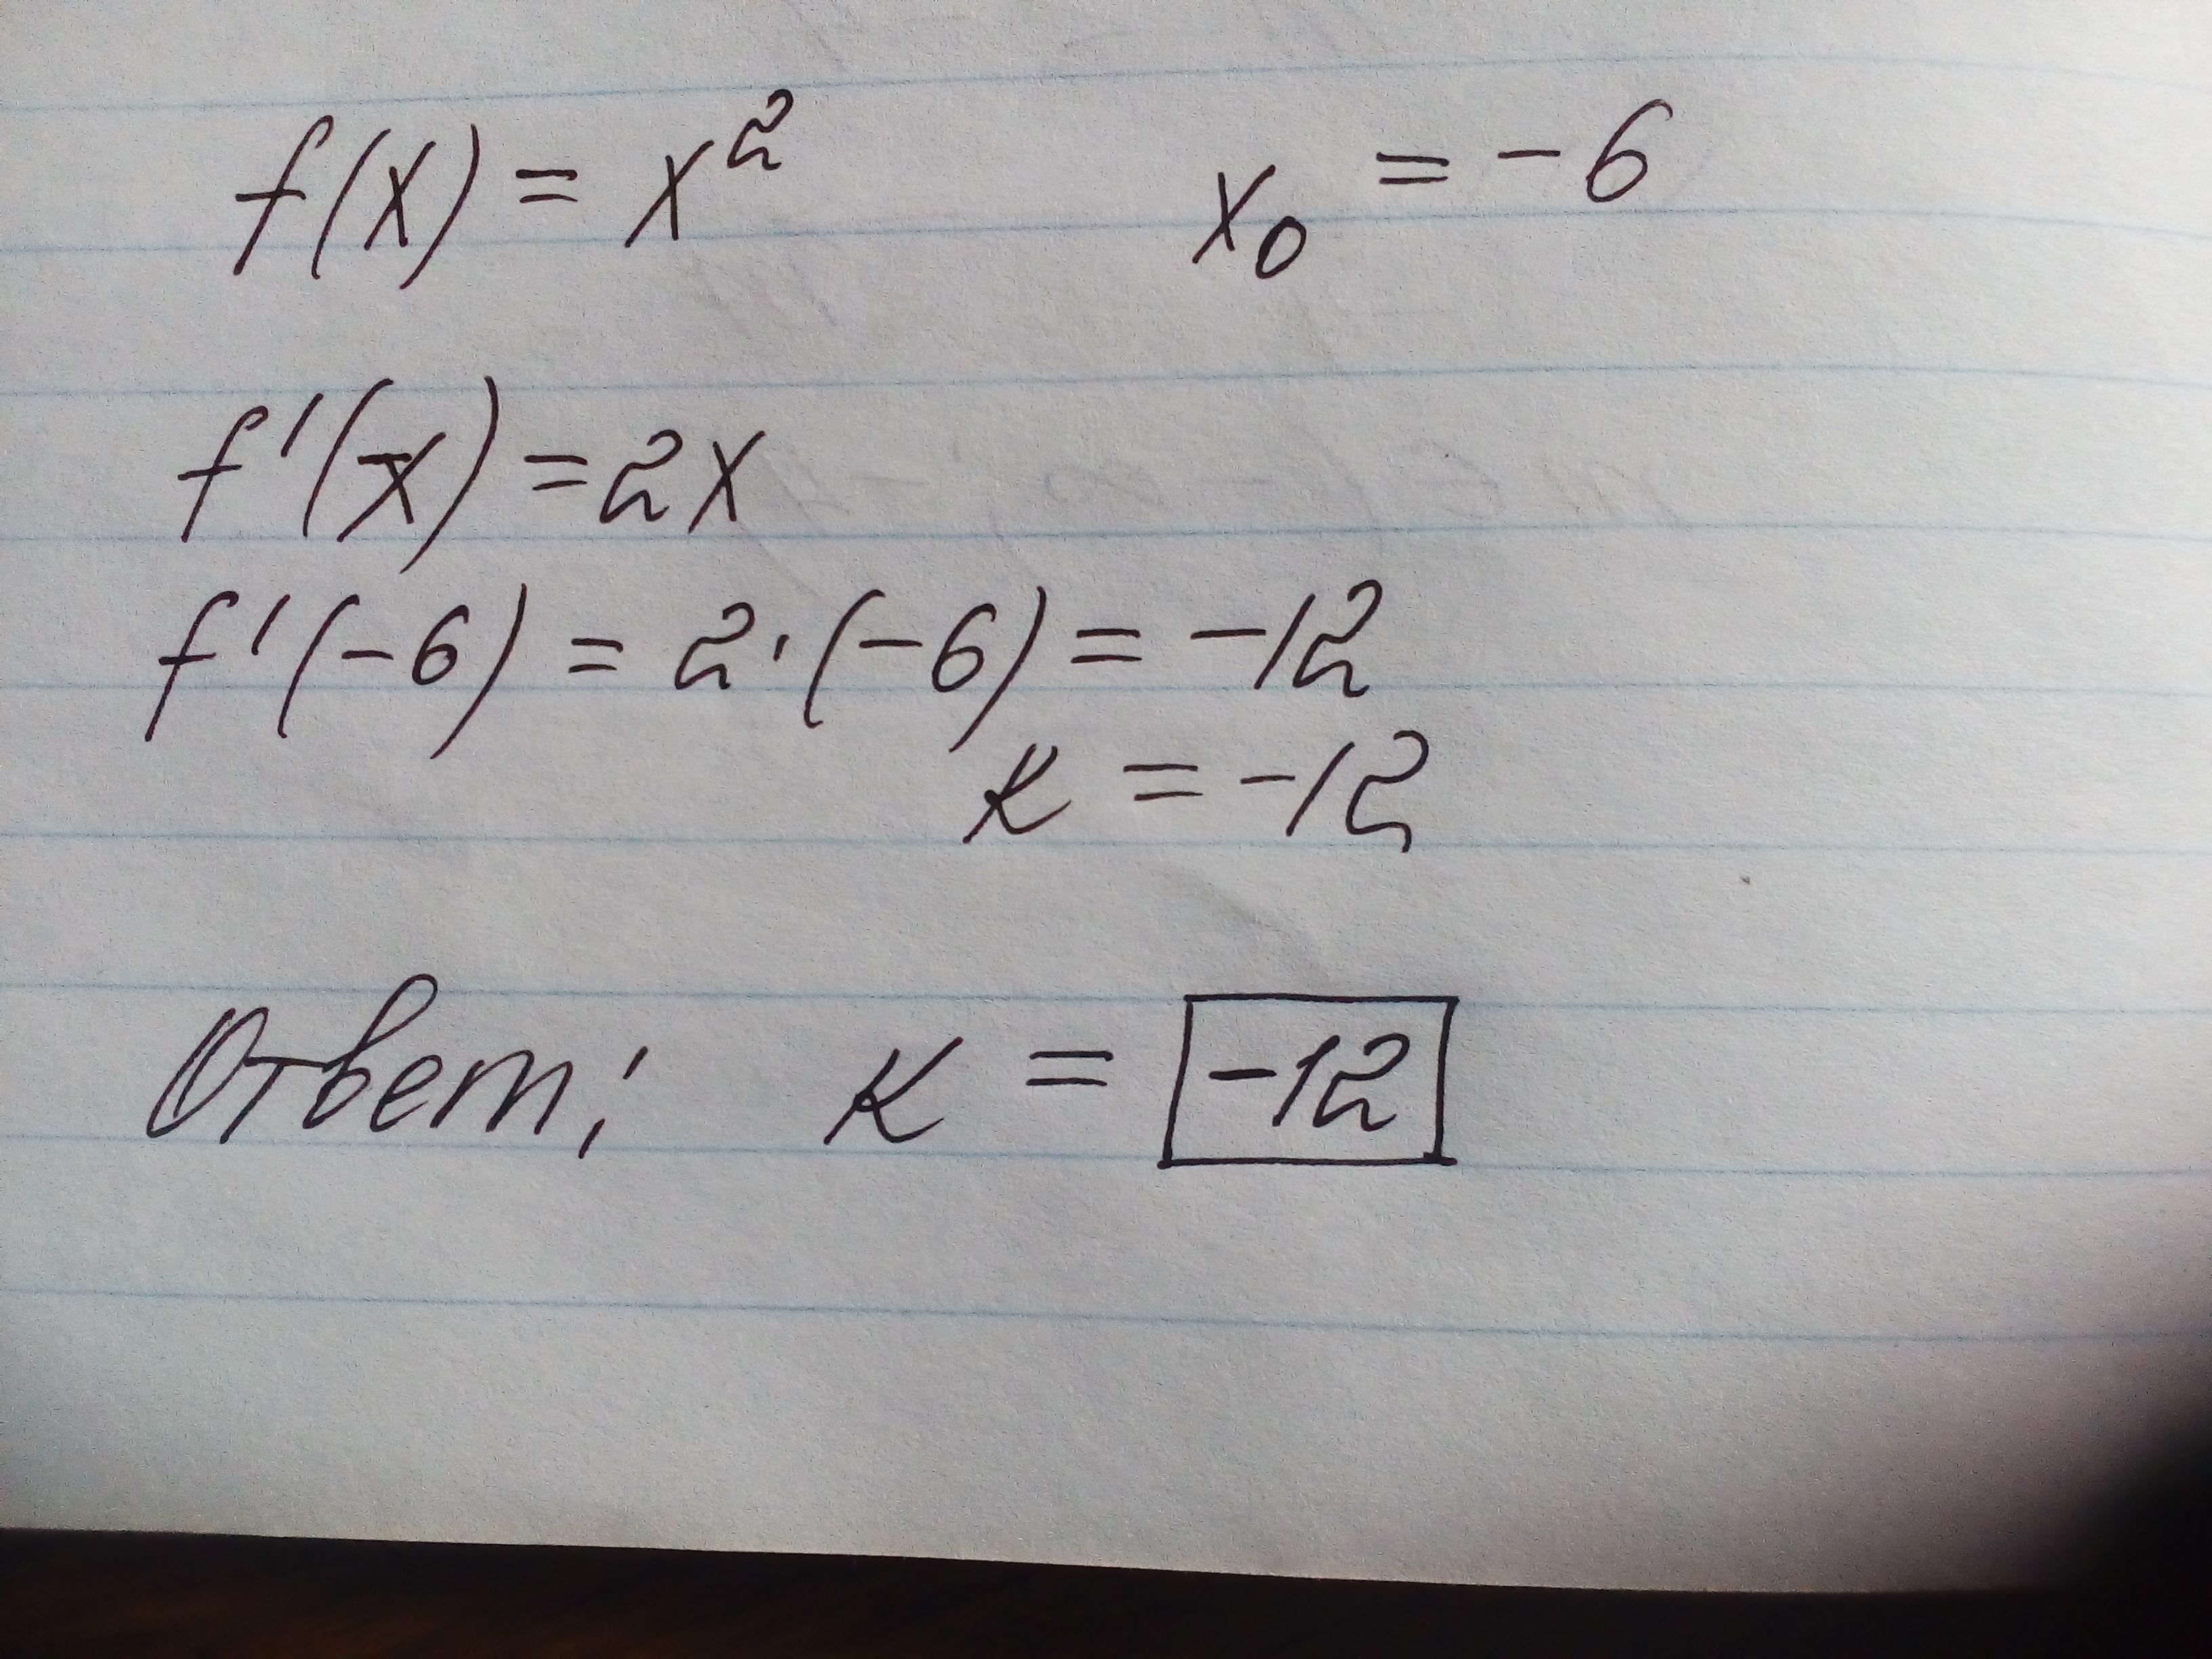 f(x) = x² x₀ = -6
f'(x) = 2x
f'(-6) = 2·(-6) = -12
к = -12
Ответ: к = -12